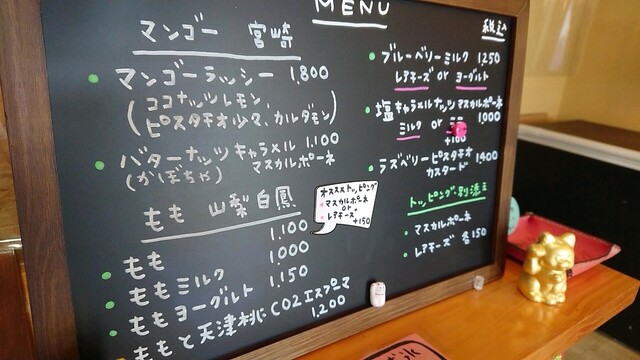 MENU
マンゴー 宮崎
マンゴーラッシー 1,800
(ココナッツレモン、
ピスタチオ少々、カルダモン)
バターナッツキャラメル 1,100
(かぼちゃ) マスカルポーネ
もも 山梨白鳳
もも 1,100
ももミルク 1,000
ももヨーグルト 1,150
ももと天津桃CO2エスプーマ
1,200
オススメトッピング
マスカルポーネ
or
レアチーズ +150
税込
ブルーベリーミルク 1250
レアチーズ or ヨーグルト
塩キャラメルナッツマスカルポーネ
ミルク or 1000
+100
ラズベリーピスタチオ 1400
カスタード
トッピング・別添え
マスカルポーネ
レアチーズ 各150